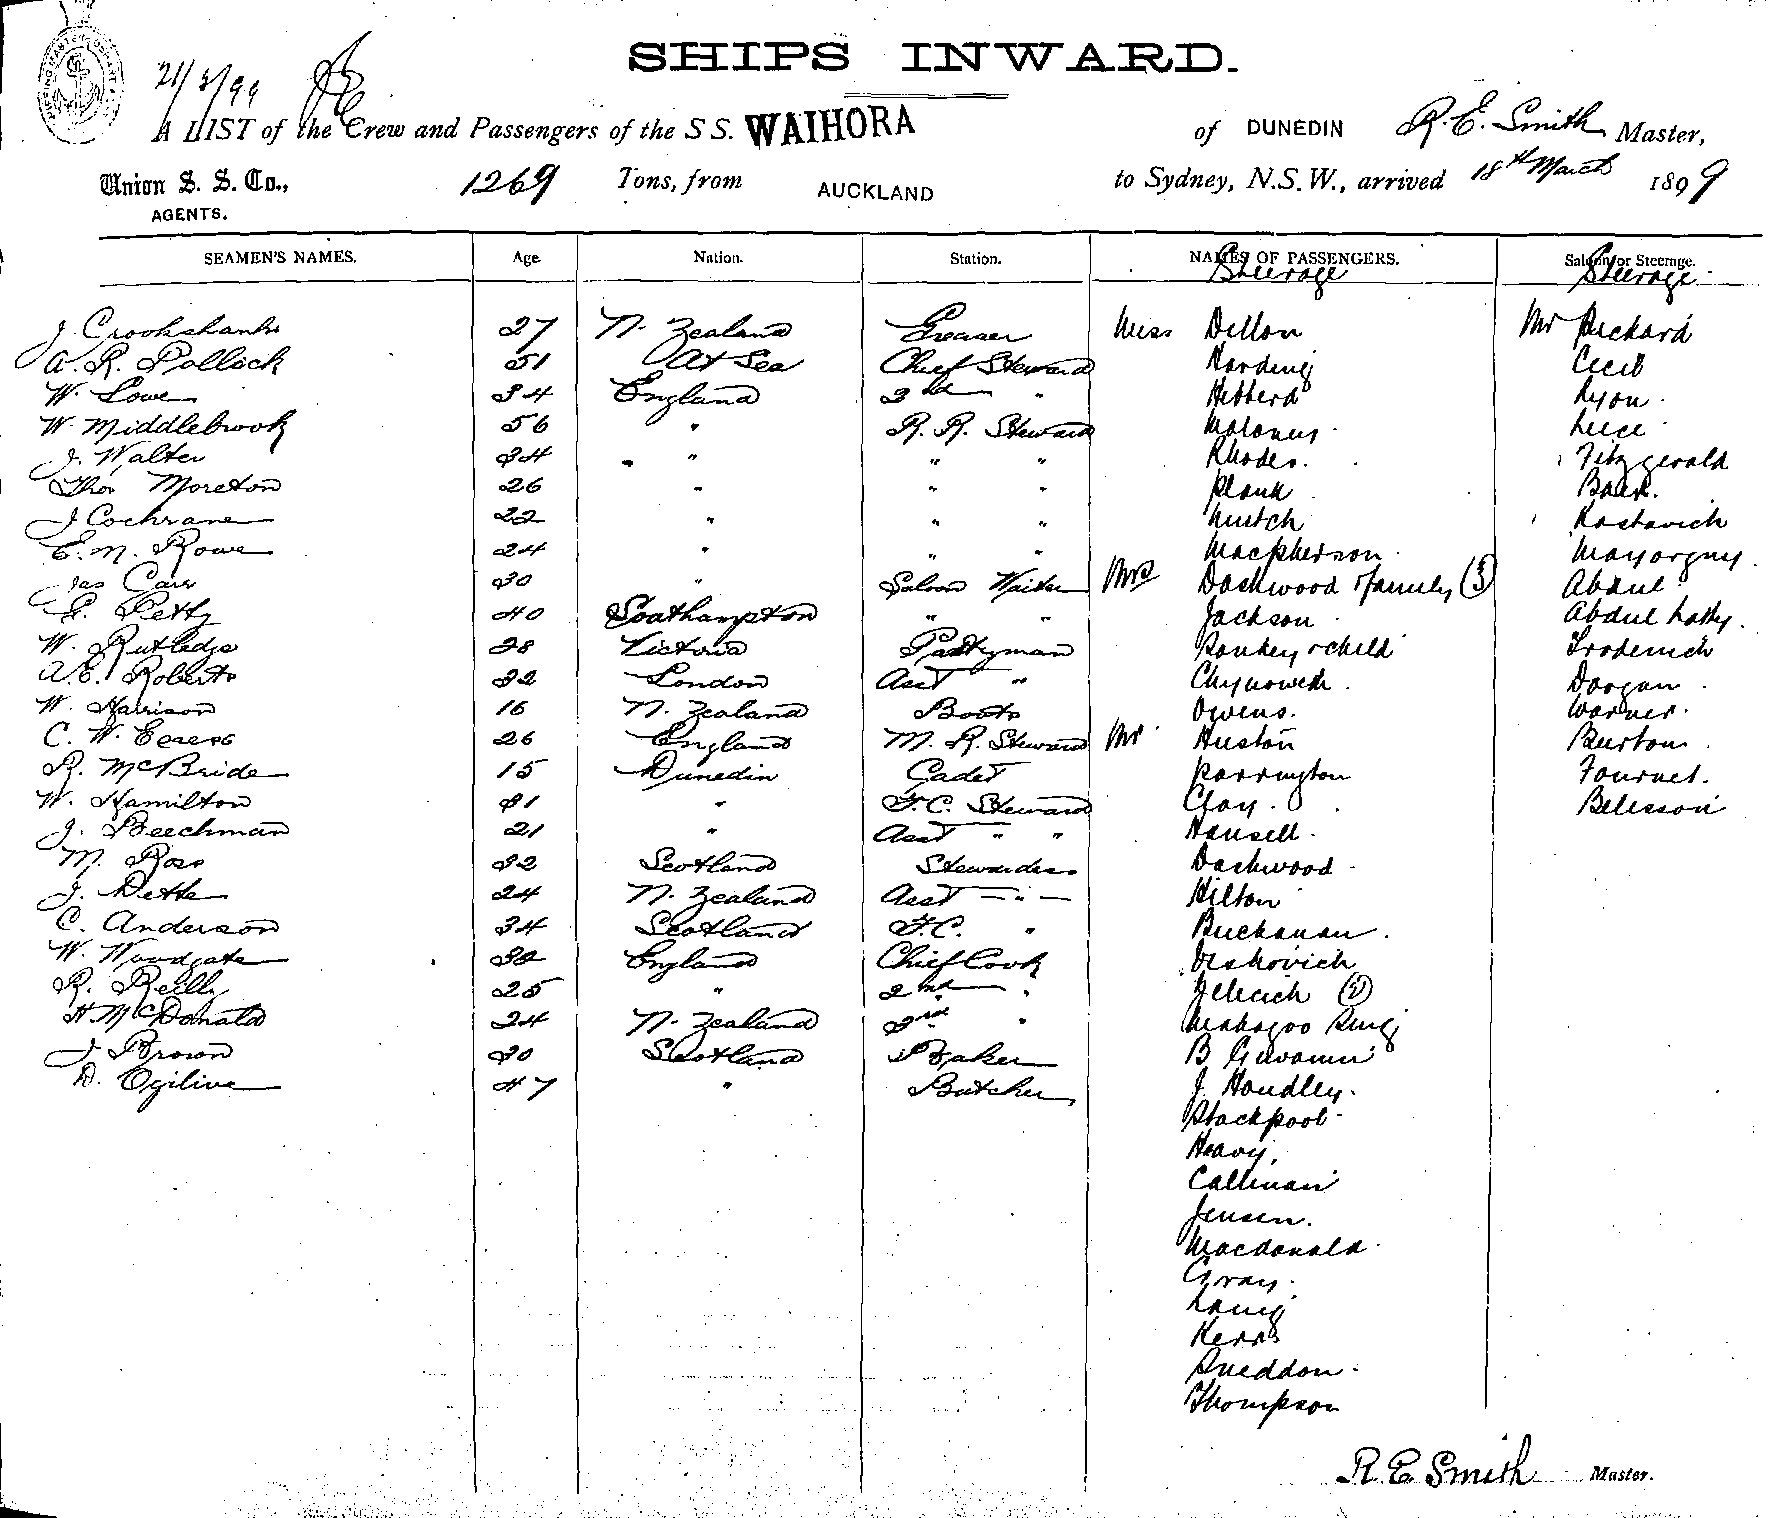 21/3/99
SHIPS INWARD.
A LIST of the Crew and Passengers of the S S. WAIHORA of DUNEDIN R. E. Smith Master,
Union S. S. Co., AGENTS. 1269 Tons, from AUCKLAND to Sydney, N.S.W., arrived 18th March 1899
SEAMEN'S NAMES. Age. Nation. Station. NAMES OF PASSENGERS. Saloon or Steerage.
Steerage Steerage
J. Crookshanks 27 N. Zealand Greaser Miss Dillon Mr Pickard
A. R. Pollock 51 At Sea Chief Steward Harding Cecil
W. Lowe 34 England 2nd " Hebberd Lyon
W. Middlebrook 56 " R. R. Steward Molonus Luce
J. Walter 34 " " " Rhodes. Fitzgerald
Thos Moreton 26 " " " Plank
J Cochrane 22 " " " Mutch Rastovich
E. M. Rowe 24 " " " Macpherson
Jas Carr 30 " Saloon Waiter Mrs Dashwood & family (3) Abdul
G. Petty 40 Southampton " " Jackson Abdul
W. Rutledge 28 Victoria Pantryman & child
A. E. Roberts 32 London Asst " Chynoweth Doogan
W. Harrison 16 N. Zealand Boots Owens. Warner.
C. W. 26 England M. R. Steward Mr Huston Burton
R. McBride 15 Dunedin Cadet Parrington Fournet.
W. Hamilton 31 " F.C. Steward Clay. Belisson
J. Beechman 21 " Asst " " Hansell
M. Ross 32 Scotland Stewardess Dashwood
J. Dette 24 N. Zealand Asst " Hilton
C. Anderson 34 Scotland F.C. " Buchanan.
W. Woodgate 32 England Chief Cook
R. Reilly 25 " 2nd " Jelicich (2)
H McDonald 24 N. Zealand 3rd "
J Brown 30 Scotland Baker B
D. Ogilive 47 " Butcher J. Handley.
Stackpool
Heavy,
Callinan
Jensen.
Macdonald
Gray.
Laing
Kerr
Sneddon
Thompson
R. E Smith Master.